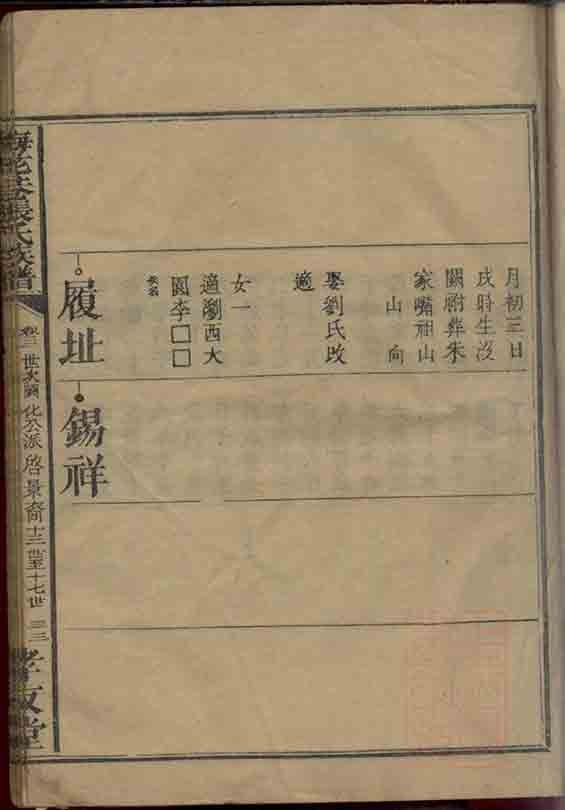 月初三日
戌時生沒
闕附葬朱
家嘴祖山
山向
娶劉氏改
適
女一
適瀏西大
園李□□
履址
錫祥
張氏族譜
卷三 世次圖 化公派 啓景裔 十三世至十七世
孝友堂